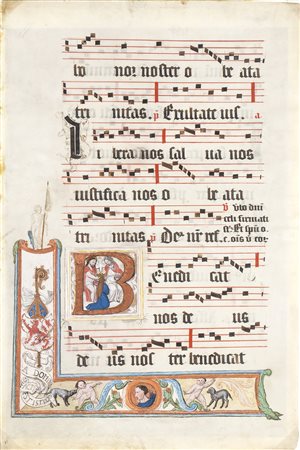 bo nor noster o be ata
tri nitas. Exultate ius.
Li bera nos sal ua nos
iustifica nos o be ata
tri nitas.
Bene di cat
nos de us
de us nos ter benedicat